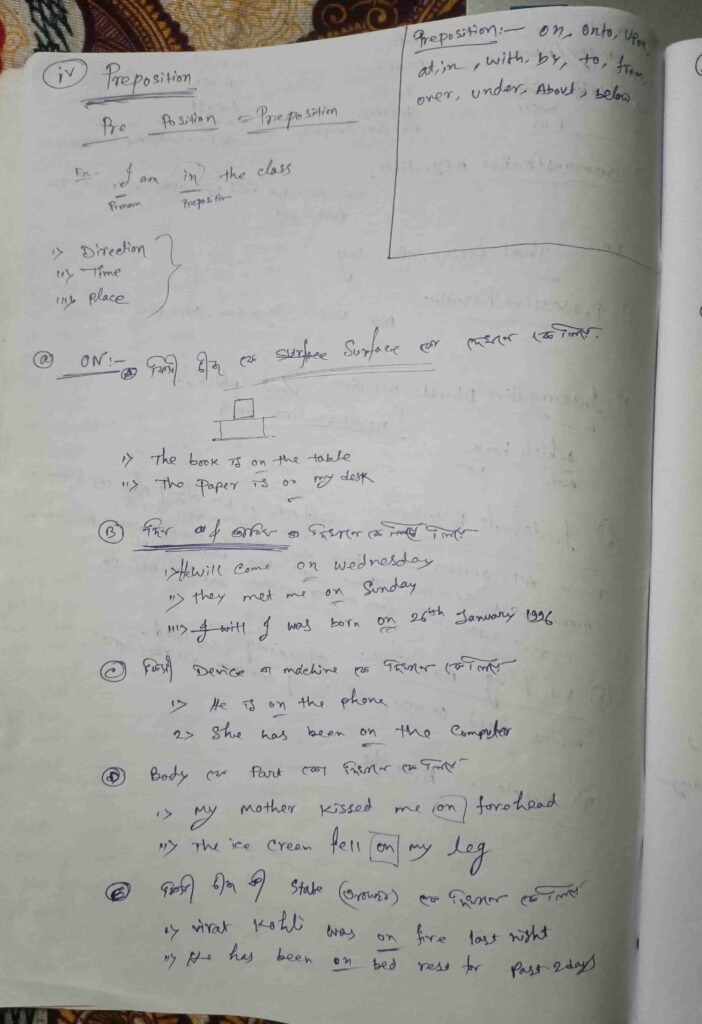 Preposition:- on, onto, upon,
at, in, with, by, to, from,
over, under, About, below
(iv) Preposition
Pre Position = Preposition
Ex- I am in the class
Pronoun Preposition
i> Direction
ii> Time
iii> place
(a) ON:- (A) किसी चीज के surface Surface को के लिए.
i> The book is on the table
ii> The paper is on my desk
(B) দিন के लिए
i> He will come on wednesday
ii> they met me on Sunday
iii> I will I was born on 26th January 1996
(C) किसी Device বা machine के लिए
i> He is on the phone
2> She has been on the Computer
(D) Body के Part के लिए
i> My mother kissed me on forehead
ii> The ice cream fell on my leg
(E) किसी चीज की State के लिए
i> virat Kohli was on fire last night
ii> He has been on bed rest for Past 2 days